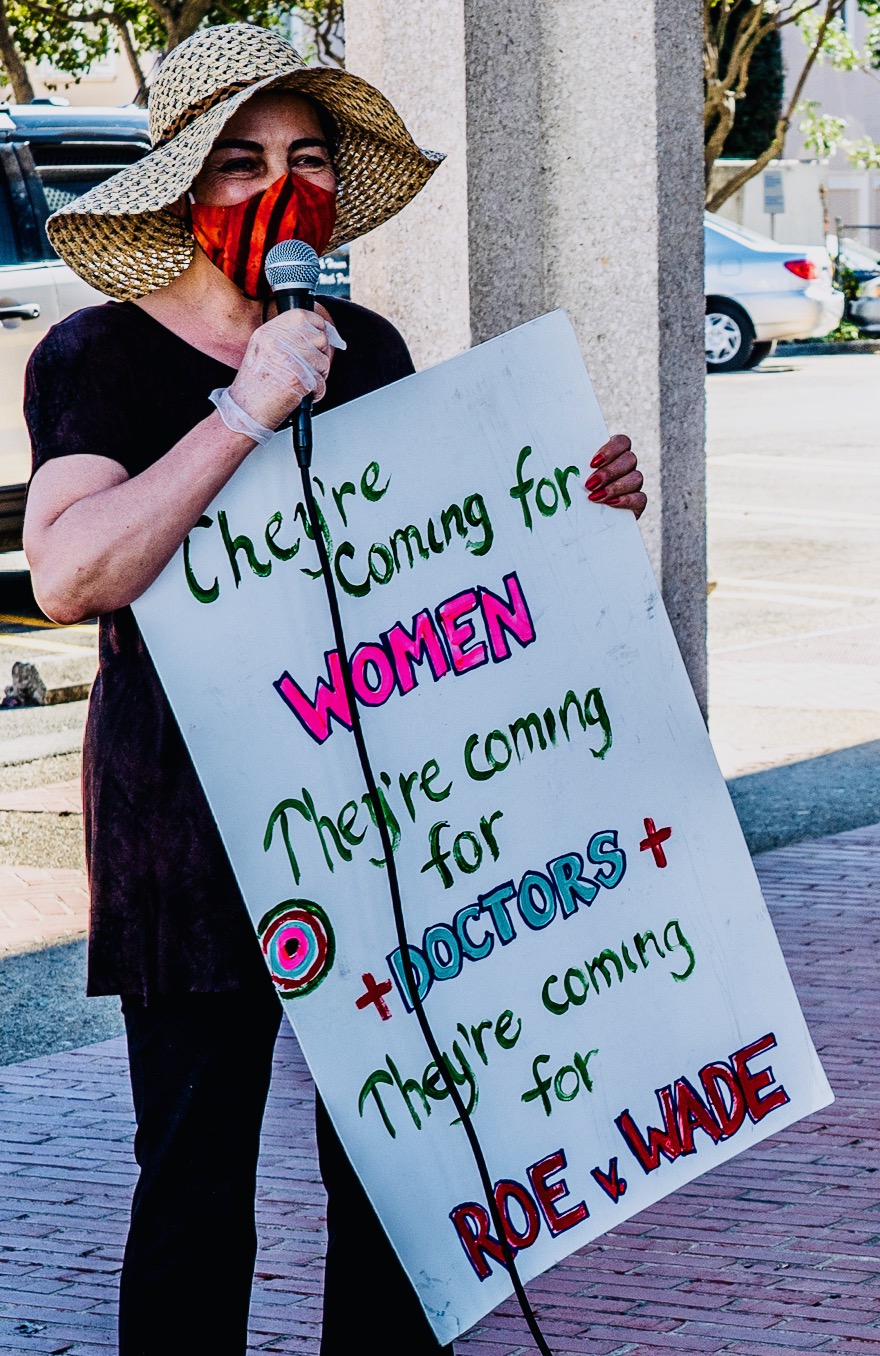 They're
coming for
WOMEN
They're coming
for
DOCTORS
They're coming
for
ROE v. WADE